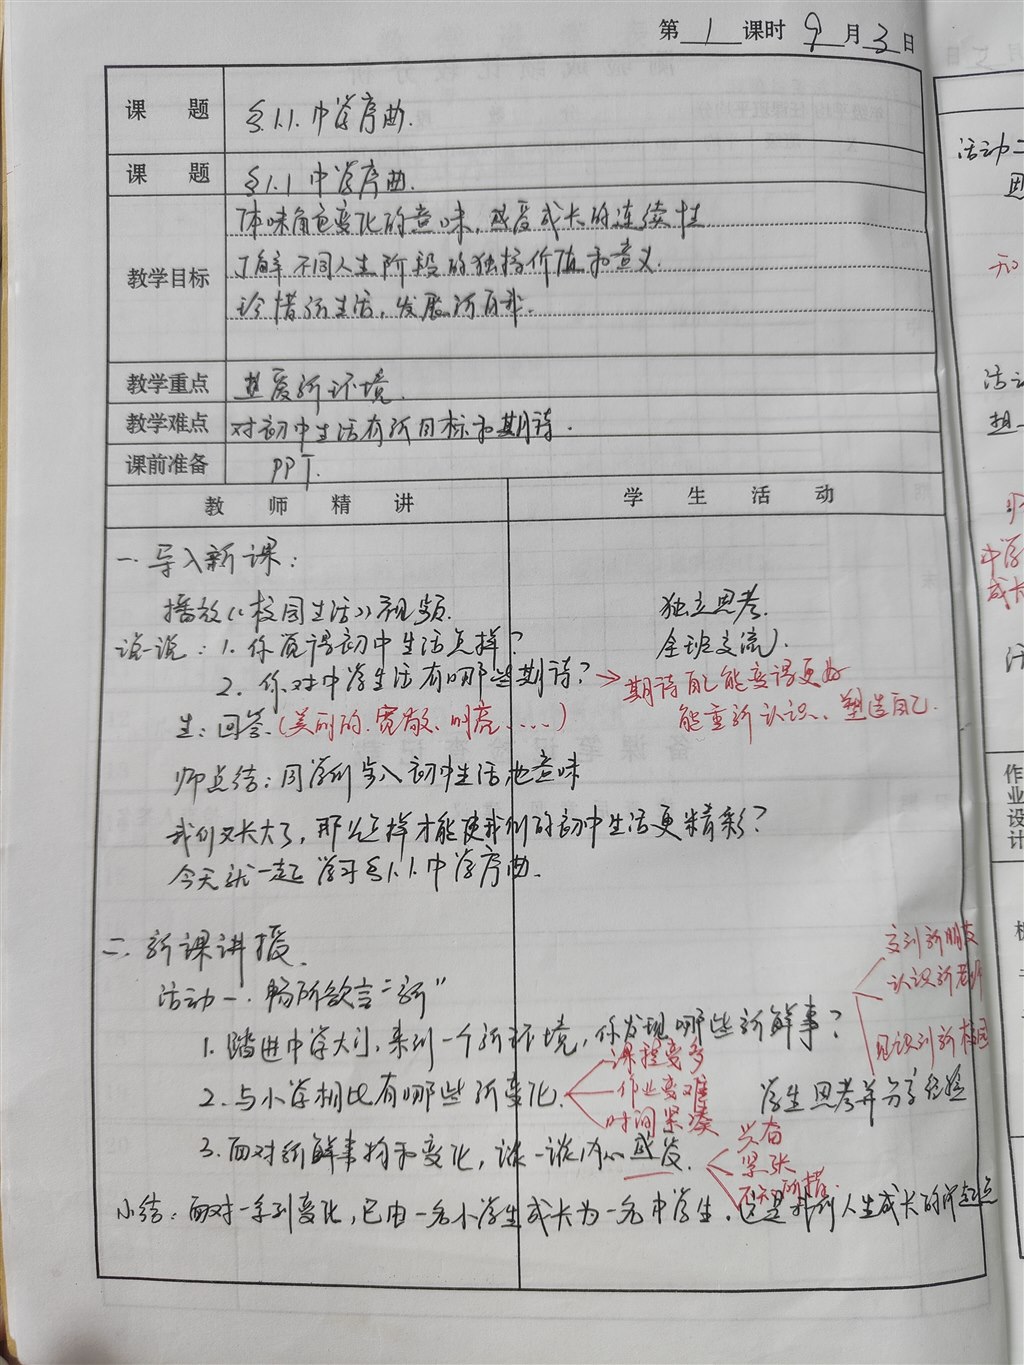 第 1 课时 9 月 3 日
课 题 §1.1. 中学序曲.
课 题 §1.1 中学序曲.
教学目标 体味角色变化的意味，感受成长的连续性
了解不同人生阶段的独特价值和意义.
珍惜新生活，发展新自我.
教学重点 热爱新环境.
教学难点 对初中生活有新目标和期待.
课前准备 PPT.
教 师 精 讲 学 生 活 动
一. 导入新课：
播放《校园生活》视频. 独立思考.
说一说：1. 你觉得初中生活怎样？ 全班交流.
2. 你对中学生活有哪些期待？→ 期待自己能变得更好
能重新认识、塑造自己.
生：回答.（美丽的. 宽敞、明亮、....）
师总结：同学们步入初中生活也意味
我们又长大了，那么怎样才能使我们的初中生活更精彩？
今天就一起学习§1.1.中学序曲.
二. 新课讲授.
交到新朋友
认识新老师
活动一. 畅所欲言"新"
1. 踏进中学大门，来到一个新环境，你发现哪些新鲜事？
见识到新校园
课程变多
2. 与小学相比有哪些新变化. 作业变难
时间紧凑
学生思考并分享经验
3. 面对新鲜事物和变化，谈一谈内心感受.
兴奋
紧张
不知所措.
小结：面对一系列变化，已由一名小学生成长为一名中学生. 这是我们人生成长的新起点
活动二
思
和
活动
想一
中学
成长
作业设计